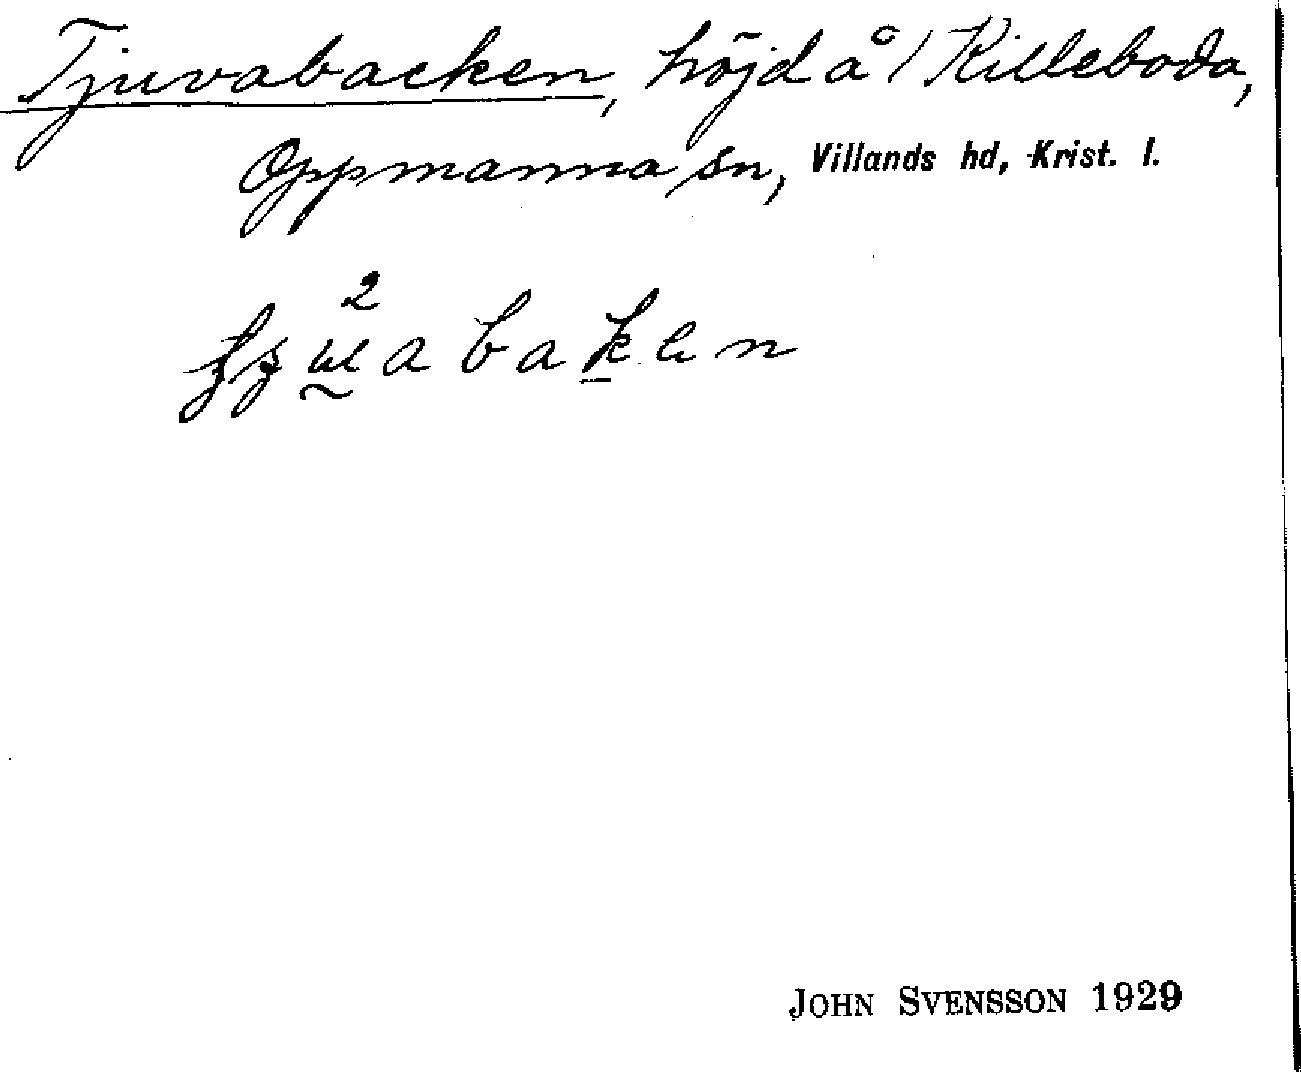 Tjuvabacken, höjd å / Killeboda,
Oppmanna sn, Villands hd, Krist. l.
JOHN SVENSSON 1929